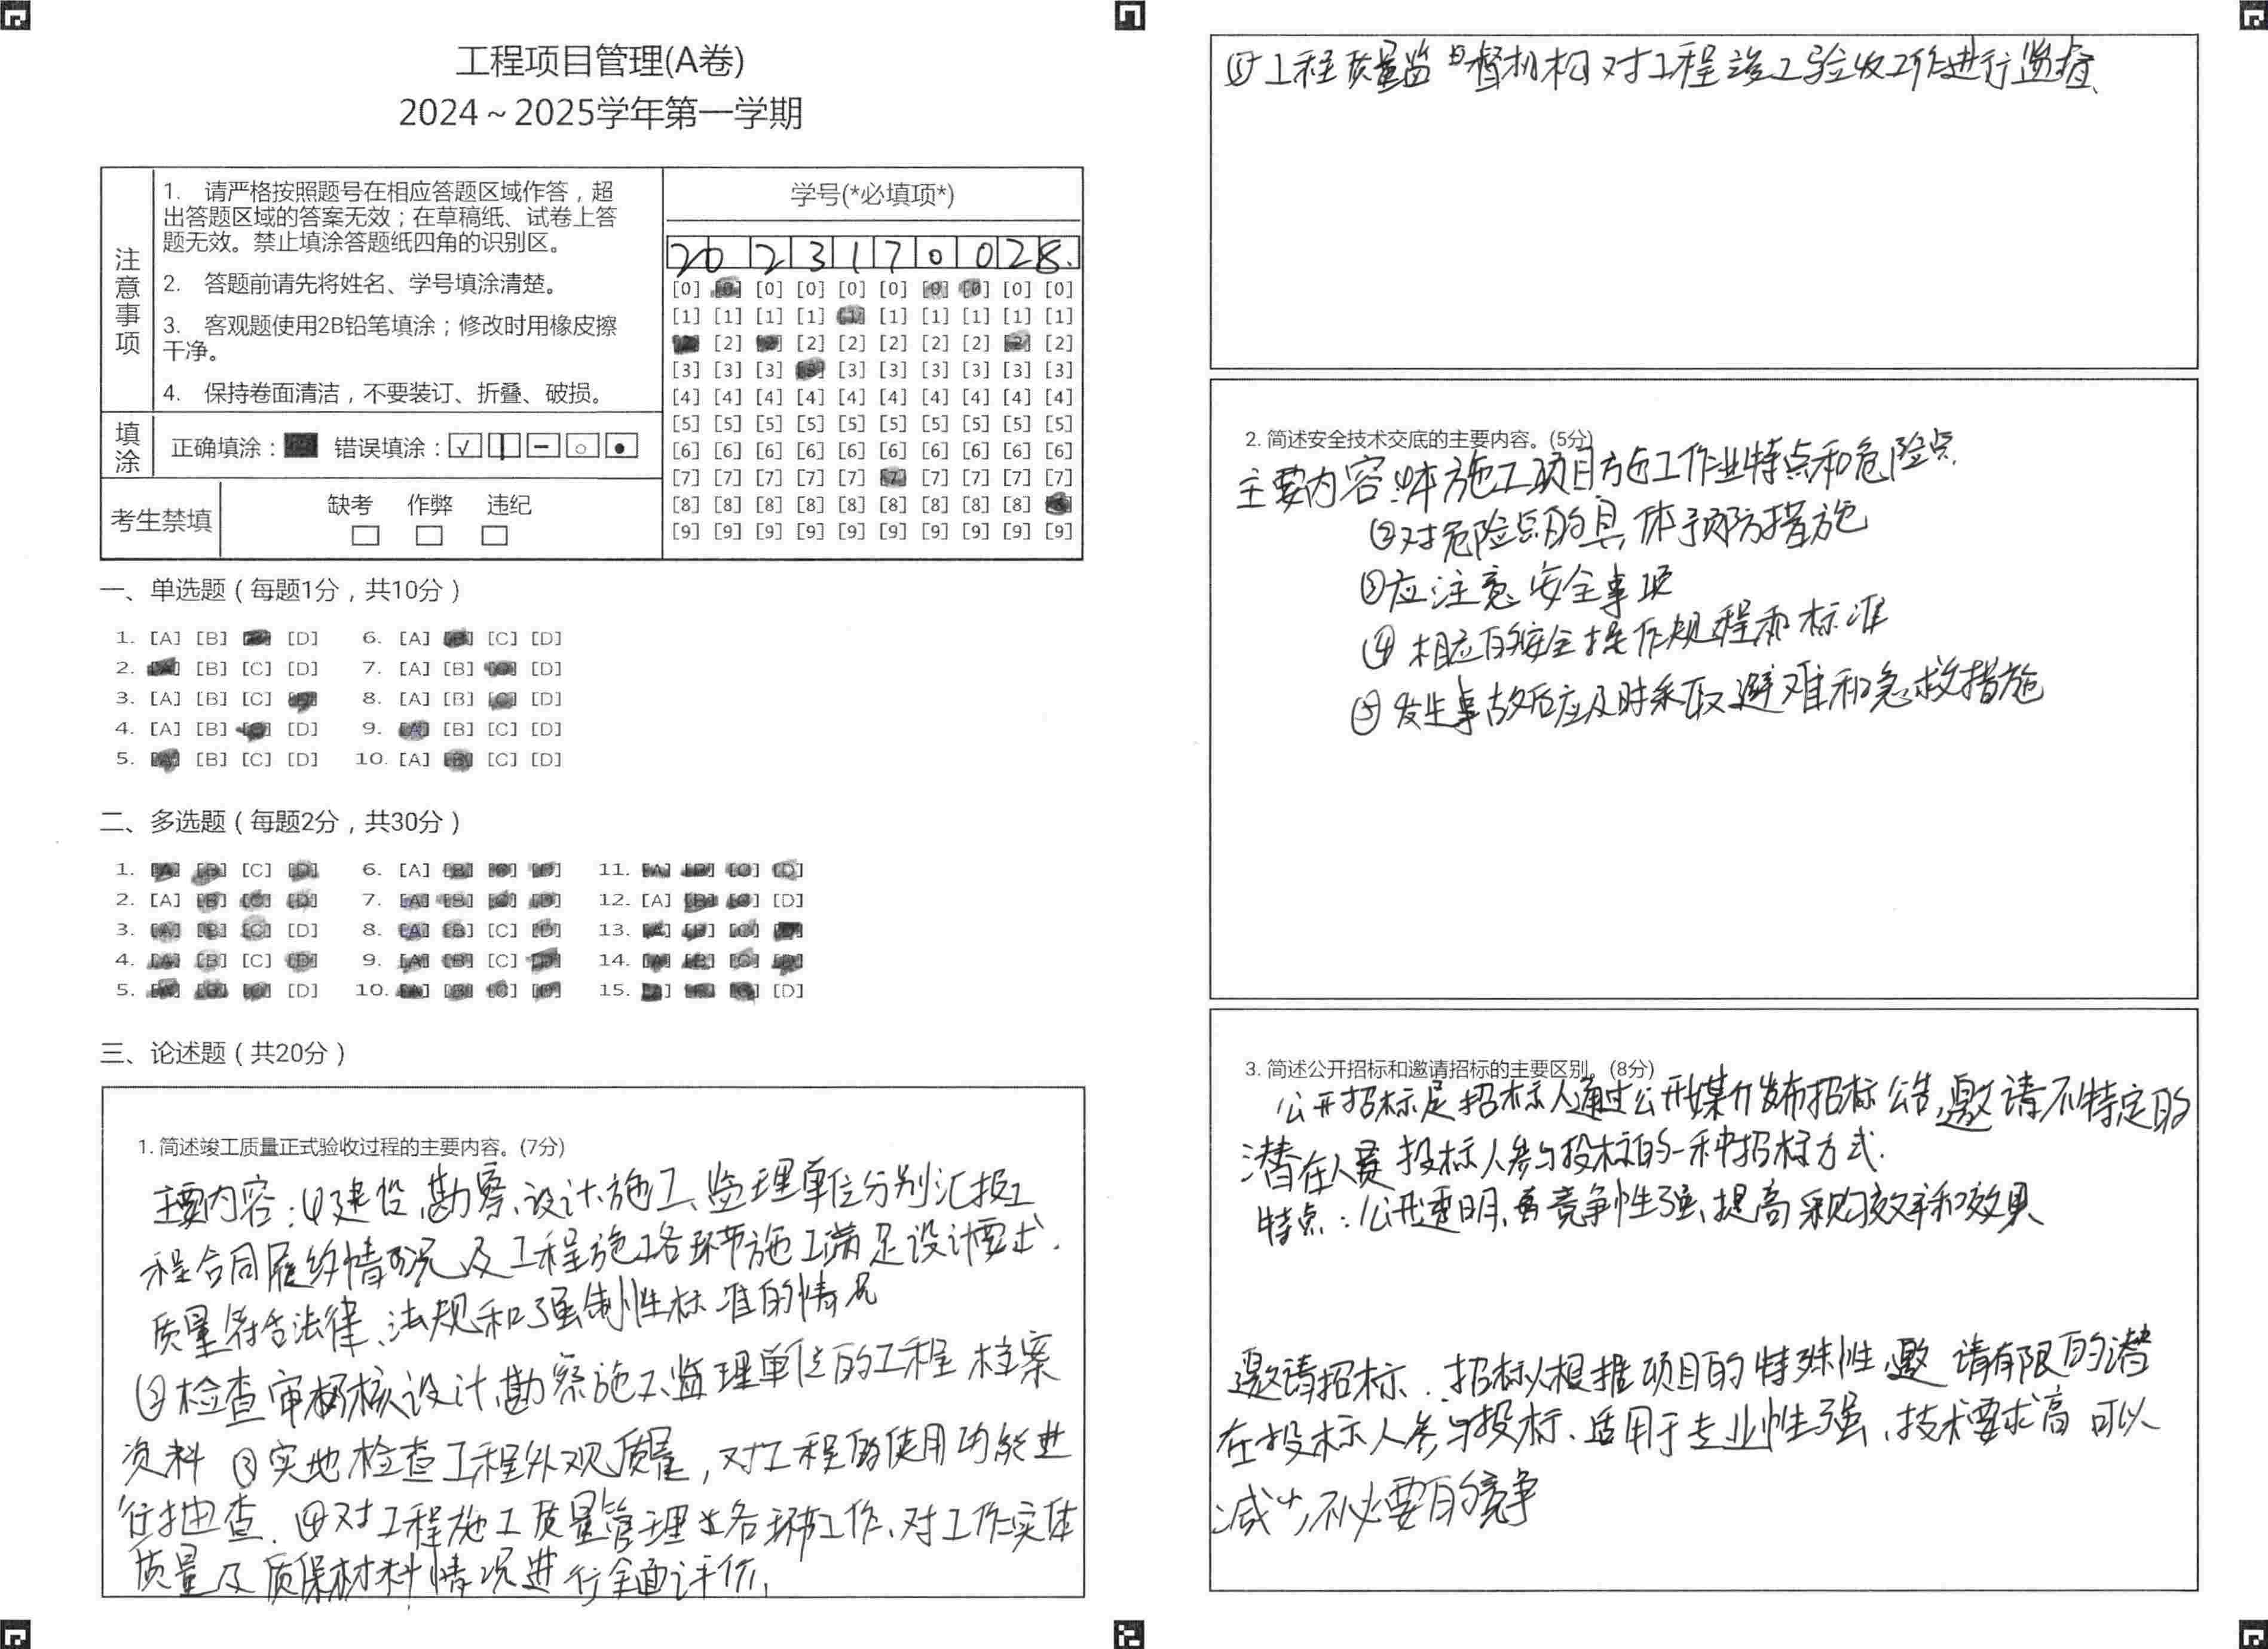 工程项目管理(A卷)
2024～2025学年第一学期
注意事项
1. 请严格按照题号在相应答题区域作答，超
出答题区域的答案无效；在草稿纸、试卷上答
题无效。禁止填涂答题纸四角的识别区。
2. 答题前请先将姓名、学号填涂清楚。
3. 客观题使用2B铅笔填涂；修改时用橡皮擦
干净。
4. 保持卷面清洁，不要装订、折叠、破损。
填涂
正确填涂： 错误填涂：
考生禁填
缺考 作弊 违纪
学号(*必填项*)
2023170028.
[0] [0] [0] [0] [0] [0] [0] [0] [0] [0]
[1] [1] [1] [1] [1] [1] [1] [1] [1] [1]
[2] [2] [2] [2] [2] [2] [2] [2] [2] [2]
[3] [3] [3] [3] [3] [3] [3] [3] [3] [3]
[4] [4] [4] [4] [4] [4] [4] [4] [4] [4]
[5] [5] [5] [5] [5] [5] [5] [5] [5] [5]
[6] [6] [6] [6] [6] [6] [6] [6] [6] [6]
[7] [7] [7] [7] [7] [7] [7] [7] [7] [7]
[8] [8] [8] [8] [8] [8] [8] [8] [8] [8]
[9] [9] [9] [9] [9] [9] [9] [9] [9] [9]
一、单选题（每题1分，共10分）
1. [A] [B] [C] [D] 6. [A] [B] [C] [D]
2. [A] [B] [C] [D] 7. [A] [B] [C] [D]
3. [A] [B] [C] [D] 8. [A] [B] [C] [D]
4. [A] [B] [C] [D] 9. [A] [B] [C] [D]
5. [A] [B] [C] [D] 10. [A] [B] [C] [D]
二、多选题（每题2分，共30分）
1. [A] [B] [C] [D] 6. [A] [B] [C] [D] 11. [A] [B] [C] [D]
2. [A] [B] [C] [D] 7. [A] [B] [C] [D] 12. [A] [B] [C] [D]
3. [A] [B] [C] [D] 8. [A] [B] [C] [D] 13. [A] [B] [C] [D]
4. [A] [B] [C] [D] 9. [A] [B] [C] [D] 14. [A] [B] [C] [D]
5. [A] [B] [C] [D] 10. [A] [B] [C] [D] 15. [A] [B] [C] [D]
三、论述题（共20分）
1. 简述竣工质量正式验收过程的主要内容。(7分)
主要内容：①建设、勘察、设计、施工、监理单位分别汇报工
程合同履约情况及工程施工各环节施工满足设计要求.
质量符合法律、法规和强制性标准的情况
②检查审核设计、勘察施工、监理单位的工程档案
资料 ③实地检查工程外观质量，对工程的使用功能进
行抽查. ④对工程施工质量管理各环节工作、对工作实体
质量及质保材料情况进行全面评价,
⑤工程质量监督机构对工程竣工验收工作进行监督、
2. 简述安全技术交底的主要内容。(5分)
主要内容:①本施工项目方施工作业特点和危险点
②对危险点的具体预防措施
③应注意安全事项
④相应的安全操作规程和标准
⑤发生事故后应及时采取避难和急救措施
3. 简述公开招标和邀请招标的主要区别。(8分)
公开招标是招标人通过公开媒介发布招标公告,邀请不特定的
潜在投标人参与投标的一种招标方式.
特点：公开透明、竞争性强、提高采购效率和效果
邀请招标：招标人根据项目的特殊性,邀请有限的潜
在投标人参与投标、适用于专业性强、技术要求高可以
减少不必要的竞争